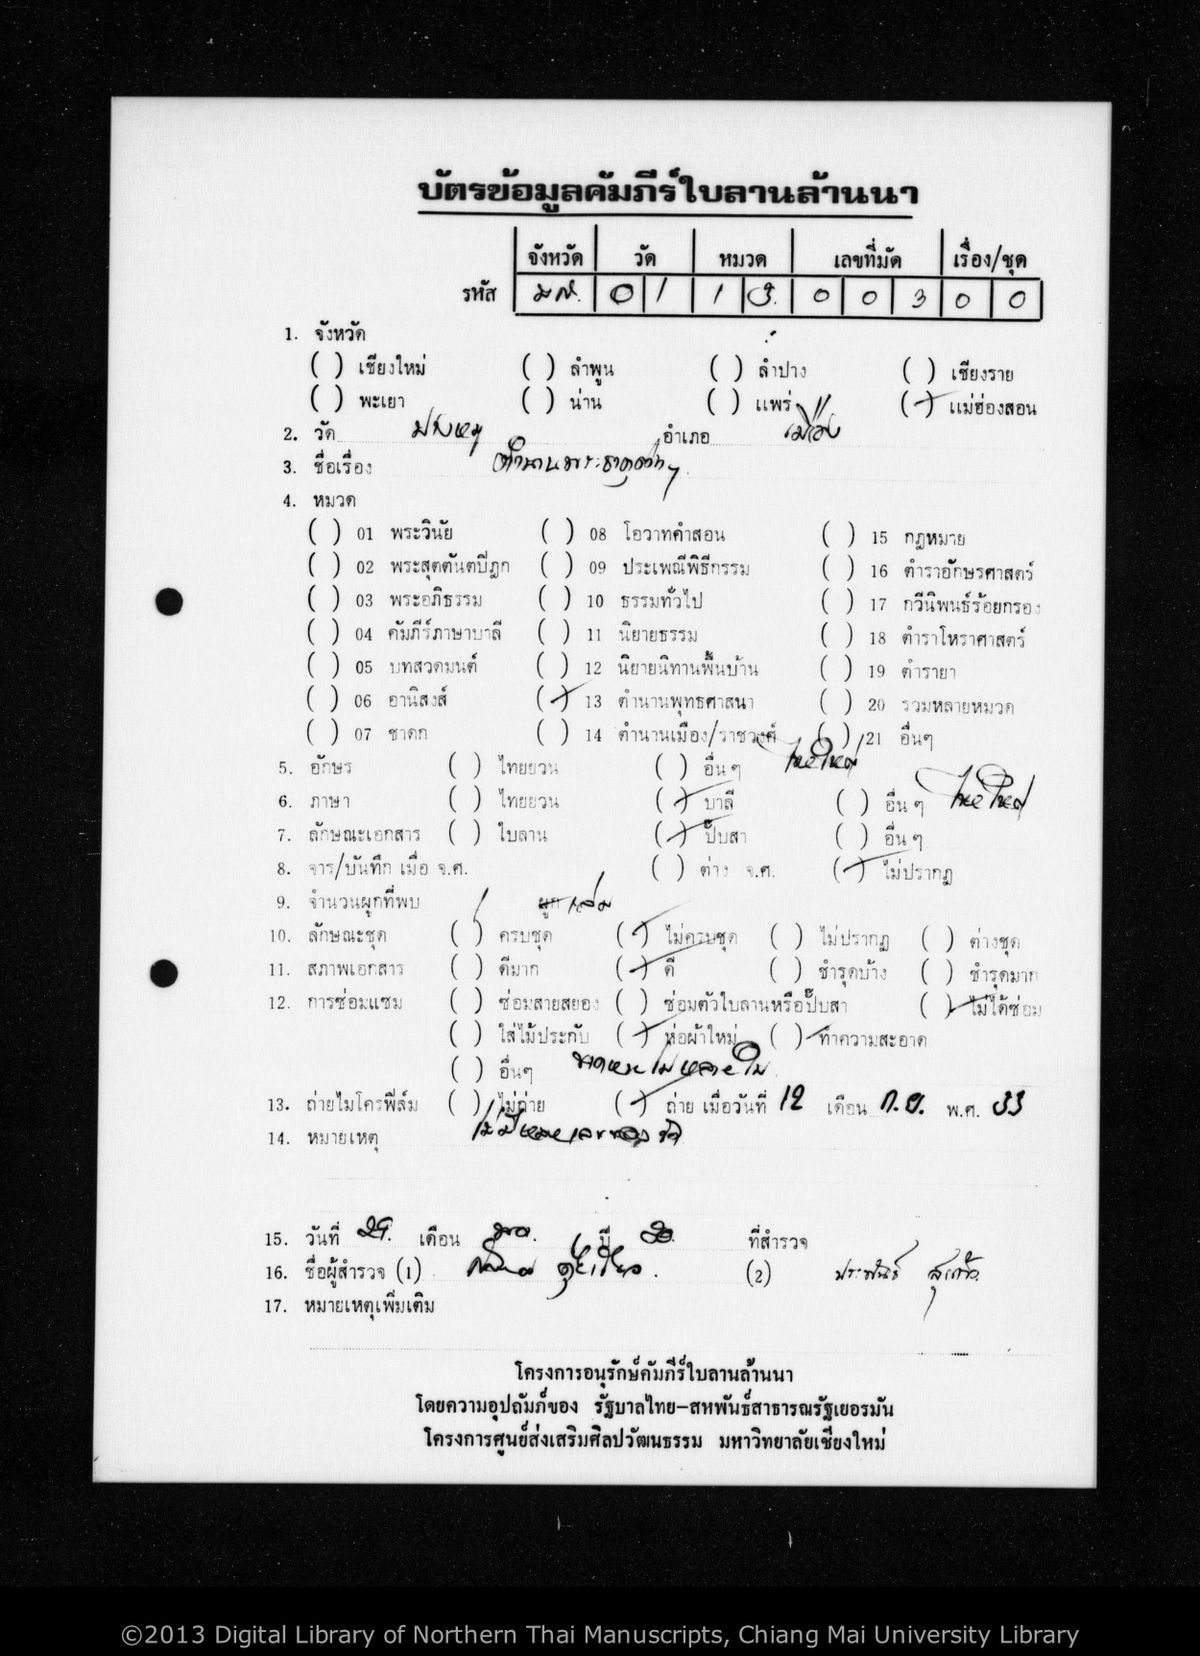 บัตรข้อมูลคัมภีร์ใบลานล้านนา
จังหวัด วัด หมวด เลขที่มัด เรื่อง/ชุด
รหัส มส. 0 1 1 3. 0 0 3 0 0
1. จังหวัด
( ) เชียงใหม่ ( ) ลำพูน ( ) ลำปาง ( ) เชียงราย
( ) พะเยา ( ) น่าน ( ) แพร่ ( ) แม่ฮ่องสอน
2. วัด อำเภอ เมือง
3. ชื่อเรื่อง ตำนานพระธาตุต่างๆ
4. หมวด
( ) 01 พระวินัย ( ) 08 โอวาทคำสอน ( ) 15 กฎหมาย
( ) 02 พระสุตตันตปิฎก ( ) 09 ประเพณีพิธีกรรม ( ) 16 ตำราอักษรศาสตร์
( ) 03 พระอภิธรรม ( ) 10 ธรรมทั่วไป ( ) 17 กวีนิพนธ์ร้อยกรอง
( ) 04 คัมภีร์ภาษาบาลี ( ) 11 นิยายธรรม ( ) 18 ตำราโหราศาสตร์
( ) 05 บทสวดมนต์ ( ) 12 นิยายนิทานพื้นบ้าน ( ) 19 ตำรายา
( ) 06 อานิสงส์ ( ) 13 ตำนานพุทธศาสนา ( ) 20 รวมหลายหมวด
( ) 07 ชาดก ( ) 14 ตำนานเมือง/ราชวงศ์ ( ) 21 อื่นๆ
5. อักษร ( ) ไทยยวน ( ) อื่นๆ ไทยใหญ่
6. ภาษา ( ) ไทยยวน ( ) บาลี ( ) อื่นๆ ไทยใหญ่
7. ลักษณะเอกสาร ( ) ใบลาน ( ) ปั๊บสา ( ) อื่นๆ
8. จาร/บันทึก เมื่อ จ.ศ. ( ) ต่าง จ.ศ. ( ) ไม่ปรากฏ
9. จำนวนผูกที่พบ 1 ผูก เล่ม
10. ลักษณะชุด ( ) ครบชุด ( ) ไม่ครบชุด ( ) ไม่ปรากฏ ( ) ต่างชุด
11. สภาพเอกสาร ( ) ดีมาก ( ) ดี ( ) ชำรุดบ้าง ( ) ชำรุดมาก
12. การซ่อมแซม ( ) ซ่อมสายสยอง ( ) ซ่อมตัวใบลานหรือปั๊บสา ( ) ไม่ได้ซ่อม
( ) ใส่ไม้ประกับ ( ) ห่อผ้าใหม่ ( ) ทำความสะอาด
( ) อื่นๆ
13. ถ่ายไมโครฟิล์ม ( ) ไม่ถ่าย ( ) ถ่าย เมื่อวันที่ 12 เดือน ก.ย. พ.ศ. 33
14. หมายเหตุ
15. วันที่ เดือน ปี ที่สำรวจ
16. ชื่อผู้สำรวจ (1) (2) ประพันธ์ สุแก้ว
17. หมายเหตุเพิ่มเติม
โครงการอนุรักษ์คัมภีร์ใบลานล้านนา
โดยความอุปถัมภ์ของ รัฐบาลไทย-สหพันธ์สาธารณรัฐเยอรมัน
โครงการศูนย์ส่งเสริมศิลปวัฒนธรรม มหาวิทยาลัยเชียงใหม่
©2013 Digital Library of Northern Thai Manuscripts, Chiang Mai University Library